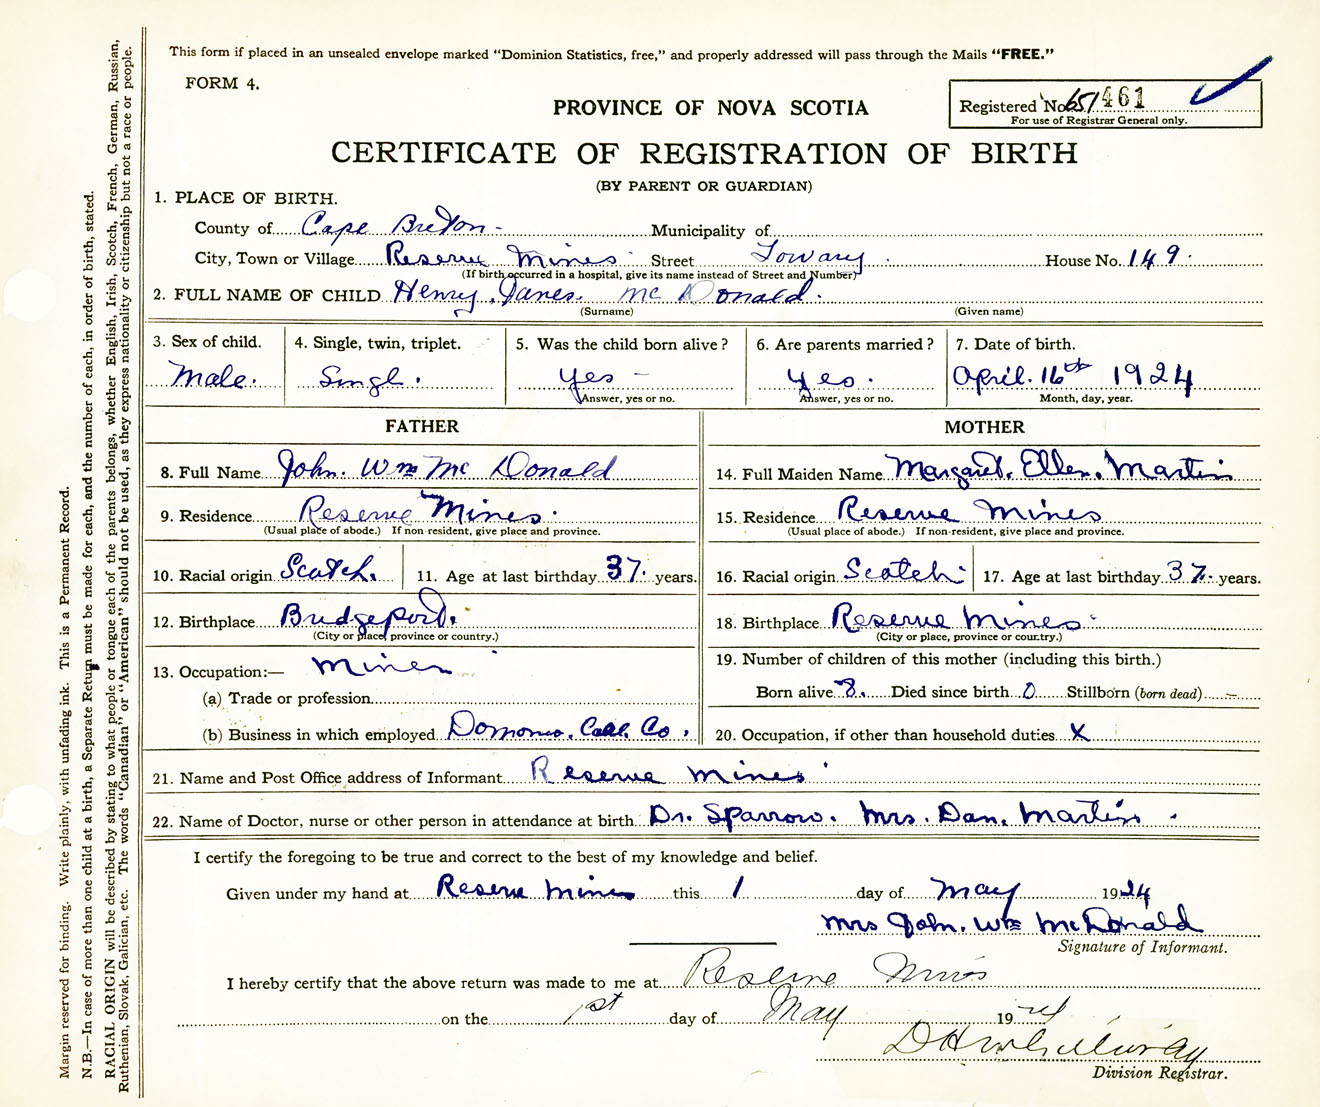 This form if placed in an unsealed envelope marked "Dominion Statistics, free," and properly addressed will pass through the Mails "FREE."
FORM 4.
PROVINCE OF NOVA SCOTIA
Registered No. 651461
For use of Registrar General only.
CERTIFICATE OF REGISTRATION OF BIRTH
(BY PARENT OR GUARDIAN)
1. PLACE OF BIRTH.
County of Cape Breton - Municipality of
City, Town or Village Reserve Mines Street House No. 149.
(If birth occurred in a hospital, give its name instead of Street and Number)
2. FULL NAME OF CHILD Henry. James. Mc Donald.
(Surname) (Given name)
3. Sex of child. 4. Single, twin, triplet. 5. Was the child born alive? 6. Are parents married? 7. Date of birth.
Male. Singl. Yes - Yes. April. 16th 1924
Answer, yes or no. Answer, yes or no. Month, day, year.
FATHER MOTHER
8. Full Name John. Wm Mc Donald 14. Full Maiden Name Margaret. Ellen. Martin
9. Residence Reserve Mines. 15. Residence Reserve Mines
(Usual place of abode.) If non-resident, give place and province. (Usual place of abode.) If non-resident, give place and province.
10. Racial origin Scotch. 11. Age at last birthday 37. years. 16. Racial origin Scotch 17. Age at last birthday 37. years.
12. Birthplace Bridgeport. 18. Birthplace Reserve Mines
(City or place, province or country.) (City or place, province or country.)
13. Occupation:— Miner 19. Number of children of this mother (including this birth.)
(a) Trade or profession Born alive 8. Died since birth 0 Stillborn (born dead) -
(b) Business in which employed Coal. Co. 20. Occupation, if other than household duties X
21. Name and Post Office address of Informant Reserve Mines
22. Name of Doctor, nurse or other person in attendance at birth Dr. Sparrow. Mrs. Dan. Martin.
I certify the foregoing to be true and correct to the best of my knowledge and belief.
Given under my hand at Reserve Mines this 1 day of May 1924
Mrs John. Wm McDonald
Signature of Informant.
I hereby certify that the above return was made to me at Reserve Mines
on the 1st day of May 1924
Division Registrar.
Margin reserved for binding. Write plainly, with unfading ink. This is a Permanent Record.
N.B.—In case of more than one child at a birth, a Separate Return must be made for each, and the number of each, in order of birth, stated.
RACIAL ORIGIN will be described by stating to what people or tongue each of the parents belongs, whether English, Irish, Scotch, French, German, Russian,
Ruthenian, Slovak, Galician, etc. The words "Canadian" or "American" should not be used, as they express nationality or citizenship but not a race or people.